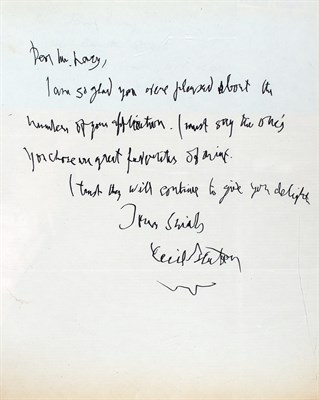 Dear Mr. Lacey,
I am so glad you were pleased about the
numbers of your application. I must say the one's
you chose are great favourites of mine.
I trust they will continue to give you delight
Yours Sincerely
Cecil Beaton